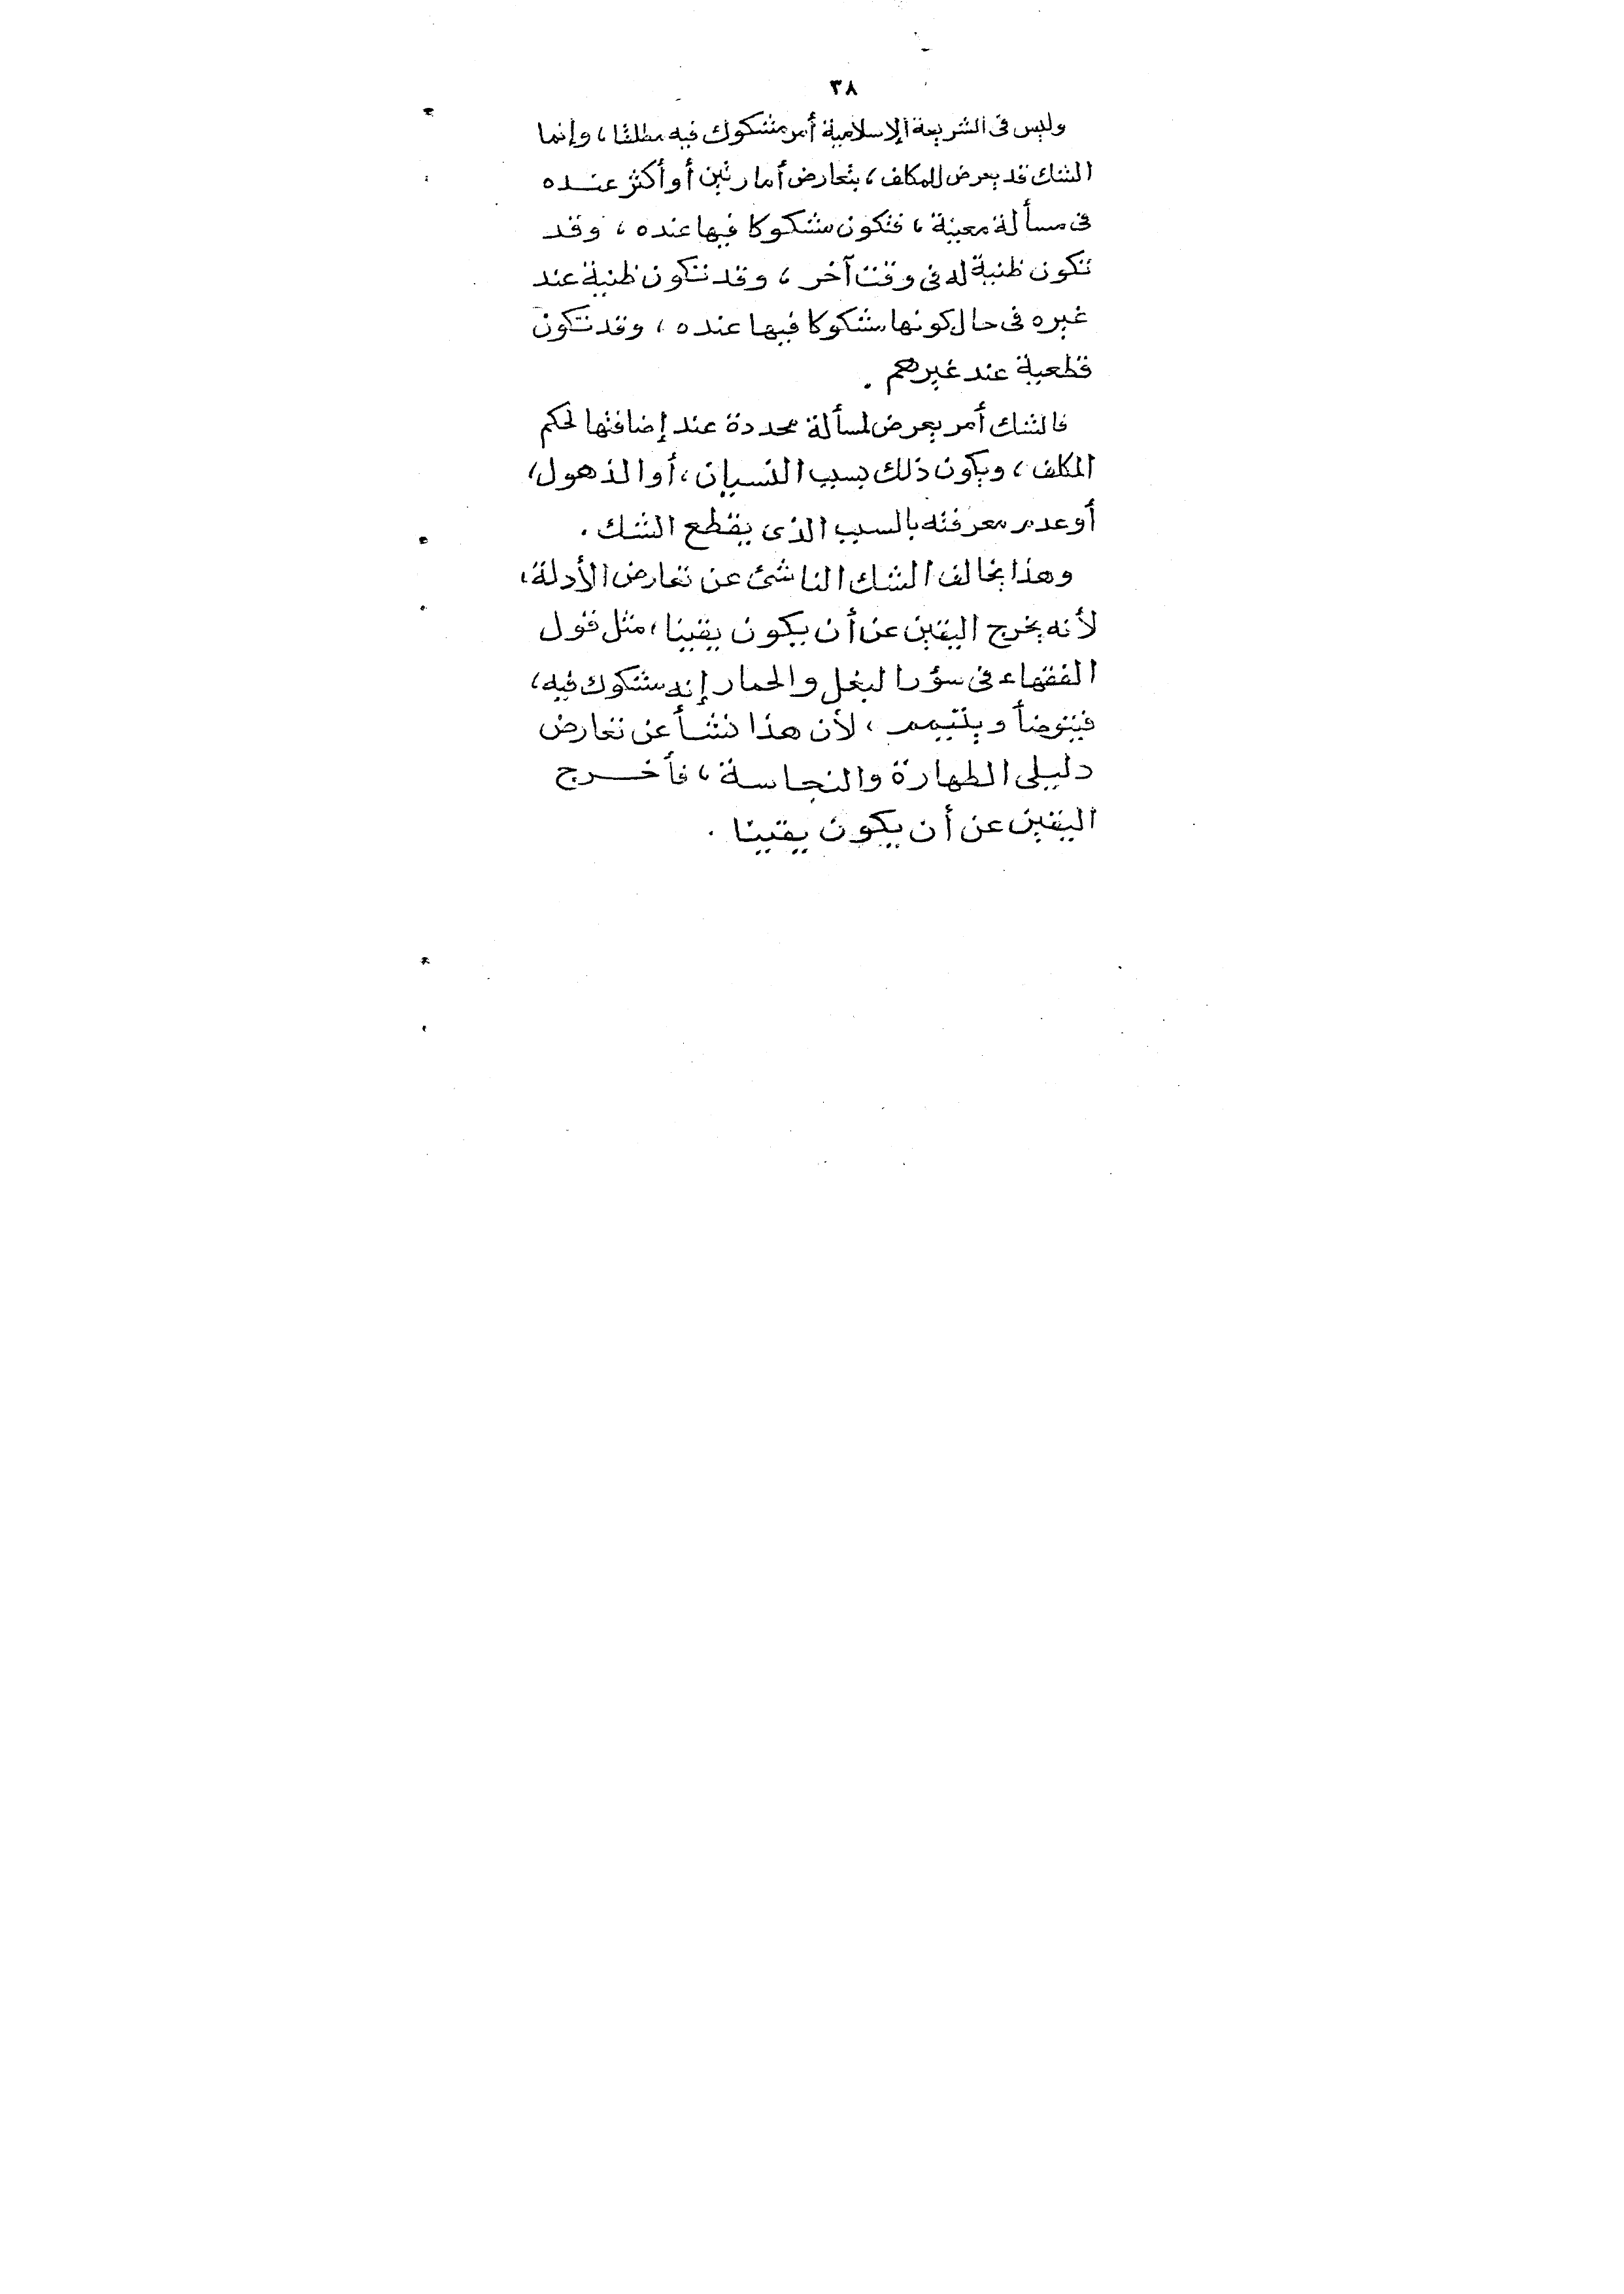 ٣٨
وليس فى الشريعة الإسلامية أمر مشكوك فيه مطلقا، وإنما
الشك قد يعرض للمكلف، بتعارض أمارتين أو أكثر عنــده
فى مسألة معينة، فتكون مشكوكا فيها عنده، وقد
تكون ظنية له فى وقت آخر، وقد تكون ظنية عند
غيره فى حال كونها مشكوكا فيها عنده، وقد تكون
قطعية عند غيرهم.
فالشك أمر يعرض لمسألة محددة عند إضافتها لحكم
المكلف، ويكون ذلك بسبب النسيان، أو الذهول،
أو عدم معرفته بالسبب الذى يقطع الشك.
وهذا يخالف الشك الناشئ عن تعارض الأدلة،
لأنه يخرج اليقين عن أن يكون يقينا، مثل قول
الفقهاء فى سؤر البغل والحمار إنه مشكوك فيه،
فيتوضأ ويتيمم، لأن هذا نشأ عن تعارض
دليلى الطهارة والنجاسة، فأخــرج
اليقين عن أن يكون يقينا.